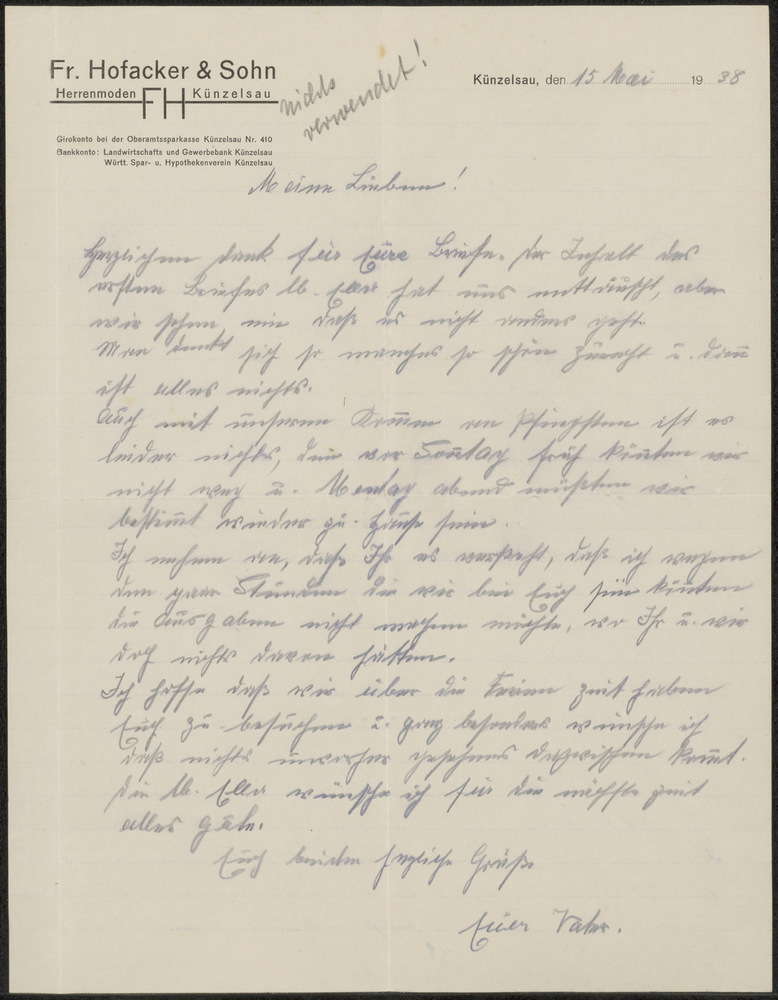 Fr. Hofacker & Sohn
Herrenmoden FH Künzelsau
Künzelsau, den 15 Mai 1938
nichts
verwendet!
Girokonto bei der Oberamtssparkasse Künzelsau Nr. 410
Bankkonto: Landwirtschafts und Gewerbebank Künzelsau
Württ. Spar- u. Hypothekenverein Künzelsau
Meine Lieben!
Herzlichen Dank für Eure Briefe. Der Inhalt des
ersten Briefes lb. Ella hat uns enttäuscht, aber
wir sehen ein daß es nicht anders geht.
Man denkt sich so manches so schön zurecht u. dann
ist alles nichts.
Auch mit unserem Kommen an Pfingsten ist es
leider nichts, denn vor Sonntag früh könnten wir
nicht weg u. Montag abend müßten wir
bestimmt wieder zu Hause sein.
Ich nehme an, daß Ihr es versteht, daß ich wegen
den paar Stunden die wir bei Euch sein könnten
die Ausgaben nicht machen möchte, wo Ihr u. wir
doch nichts davon hätten.
Ich hoffe daß wir über die Ferien Zeit haben
Euch zu besuchen u. ganz besonders wünsche ich
daß nichts unvorher gesehenes dazwischen kommt.
Der lb. Ella wünsche ich für die nächste Zeit
alles Gute.
Euch beiden herzliche Grüße
Euer Vater.